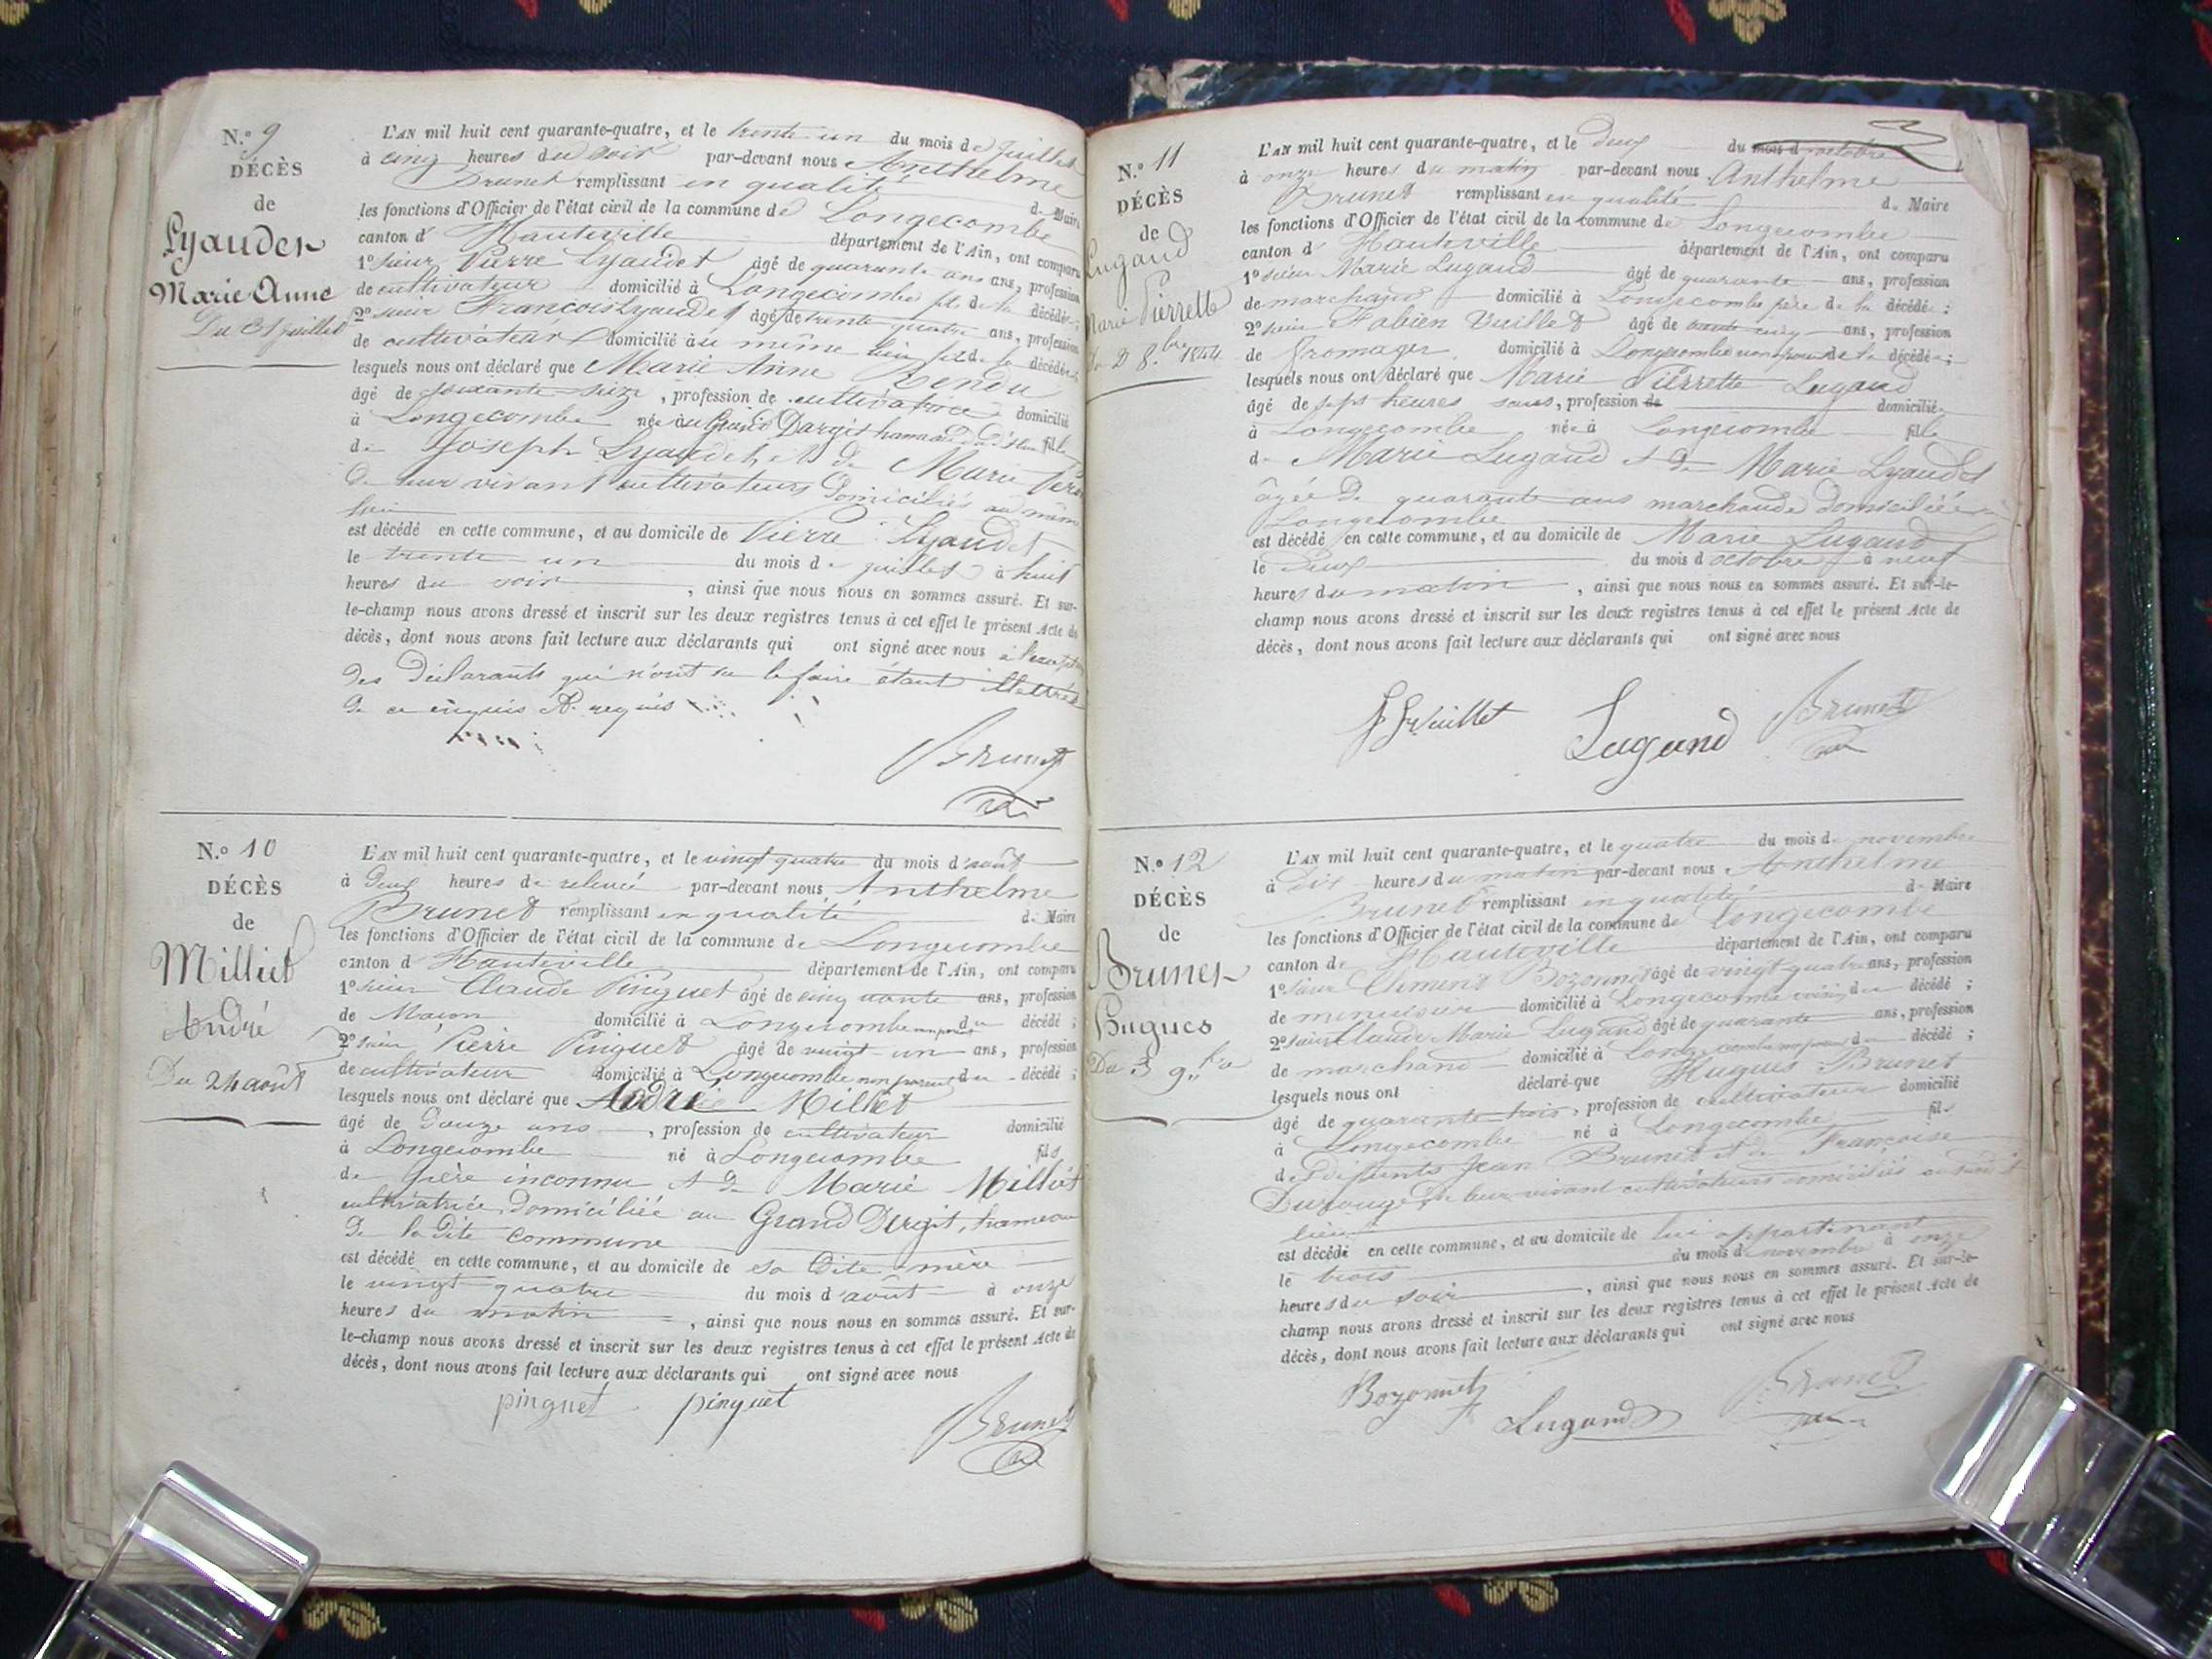 N.º 9
DÉCÈS
de
Lyaudet
Marie Anne
Du 31 juillet
L'AN mil huit cent quarante-quatre, et le trente un du mois de juillet
à cinq heures du soir par-devant nous Anthelme
Brunet remplissant en qualité de Maire
les fonctions d'Officier de l'état civil de la commune de Longecombe
canton d' Hauteville département de l'Ain, ont comparu
1º sieur Pierre Lyaudet âgé de quarante ans, profession
de cultivateur domicilié à Longecombe fils de la décédée;
2º sieur Francois Lyaudet âgé de trente quatre ans, profession
de cultivateur domicilié au même lieu fils de la décédée;
lesquels nous ont déclaré que Marie Anne
âgé de soixante seize, profession de cultivatrice domicilié
à Longecombe née au hameau fille
de Joseph Lyaudet, et de Marie
de leur vivant cultivateurs domiciliés au même
lieu
est décédé en cette commune, et au domicile de Pierre Lyaudet
le trente un du mois de juillet à huit
heures du soir, ainsi que nous nous en sommes assuré. Et sur-
le-champ nous avons dressé et inscrit sur les deux registres tenus à cet effet le présent Acte de
décès, dont nous avons fait lecture aux déclarants qui ont signé avec nous à l'exception
des déclarants qui n'ont su le faire étant illettrés
de ce enquis et requis
Brunet
N.º 10
DÉCÈS
de
Milliet
André
Du 24 août
L'AN mil huit cent quarante-quatre, et le vingt quatre du mois d'août
à deux heures de relevée par-devant nous Anthelme
Brunet remplissant en qualité de Maire
les fonctions d'Officier de l'état civil de la commune de Longecombe
canton d' Hauteville département de l'Ain, ont comparu
1º sieur Claude Pinguet âgé de cinquante ans, profession
de Macon domicilié à Longecombe non parent du décédé;
2º sieur Pierre Pinguet âgé de vingt-un ans, profession
de cultivateur domicilié à Longecombe non parent du décédé;
lesquels nous ont déclaré que André Milliet
âgé de douze ans, profession de cultivateur domicilié
à Longecombe né à Longecombe fils
de père inconnu et de Marie Milliet
cultivatrice domiciliée au Grand Dergit, hameau
de la dite commune
est décédé en cette commune, et au domicile de sa dite mère
le vingt quatre du mois d'août à onze
heures du matin, ainsi que nous nous en sommes assuré. Et sur-
le-champ nous avons dressé et inscrit sur les deux registres tenus à cet effet le présent Acte de
décès, dont nous avons fait lecture aux déclarants qui ont signé avec nous
pinguet pinguet
Brunet
N.º 11
DÉCÈS
de
Lugand
Marie Pierrette
Du 2 8.bre 1844
L'AN mil huit cent quarante-quatre, et le deux du mois d'octobre
à onze heures du matin par-devant nous Anthelme
Brunet remplissant en qualité de Maire
les fonctions d'Officier de l'état civil de la commune de Longecombe
canton d' Hauteville département de l'Ain, ont comparu
1º sieur Marie Lugand âgé de quarante ans, profession
de marchand domicilié à Longecombe père de la décédée;
2º sieur Fabien Vuillet âgé de trente cinq ans, profession
de fromager domicilié à Longecombe non parent de la décédée;
lesquels nous ont déclaré que Marie Pierrette Lugand
âgé de sept heures, profession de domicilié
à Longecombe née à Longecombe fille
de Marie Lugand et de Marie Lyaudet
âgée de quarante ans marchande domiciliée à
Longecombe
est décédé en cette commune, et au domicile de Marie Lugand
le deux du mois d'octobre à neuf
heures du matin, ainsi que nous nous en sommes assuré. Et sur-le-
champ nous avons dressé et inscrit sur les deux registres tenus à cet effet le présent Acte de
décès, dont nous avons fait lecture aux déclarants qui ont signé avec nous
Vuillet Lugand Brunet
N.º 12
DÉCÈS
de
Brunet
Hugues
Du 3 9.bre
L'AN mil huit cent quarante-quatre, et le quatre du mois de novembre
à dix heures du matin par-devant nous Anthelme
Brunet remplissant en qualité de Maire
les fonctions d'Officier de l'état civil de la commune de Longecombe
canton de Hauteville département de l'Ain, ont comparu
1º sieur Clément Bozonnet âgé de vingt quatre ans, profession
de menuisier domicilié à Longecombe voisin du décédé;
2º sieur Claude Marie Lugand âgé de quarante ans, profession
de marchand domicilié à Longecombe non parent du décédé;
lesquels nous ont déclaré que Hugues Brunet
âgé de quarante trois, profession de cultivateur domicilié
à Longecombe né à Longecombe fils
de défunts Jean Brunet et de Françoise
de leur vivant cultivateurs domiciliés au susdit
lieu
est décédé en cette commune, et au domicile de lui appartenant
le trois du mois de novembre à onze
heures du soir, ainsi que nous nous en sommes assuré. Et sur-le-
champ nous avons dressé et inscrit sur les deux registres tenus à cet effet le présent Acte de
décès, dont nous avons fait lecture aux déclarants qui ont signé avec nous
Bozonnet Lugand Brunet